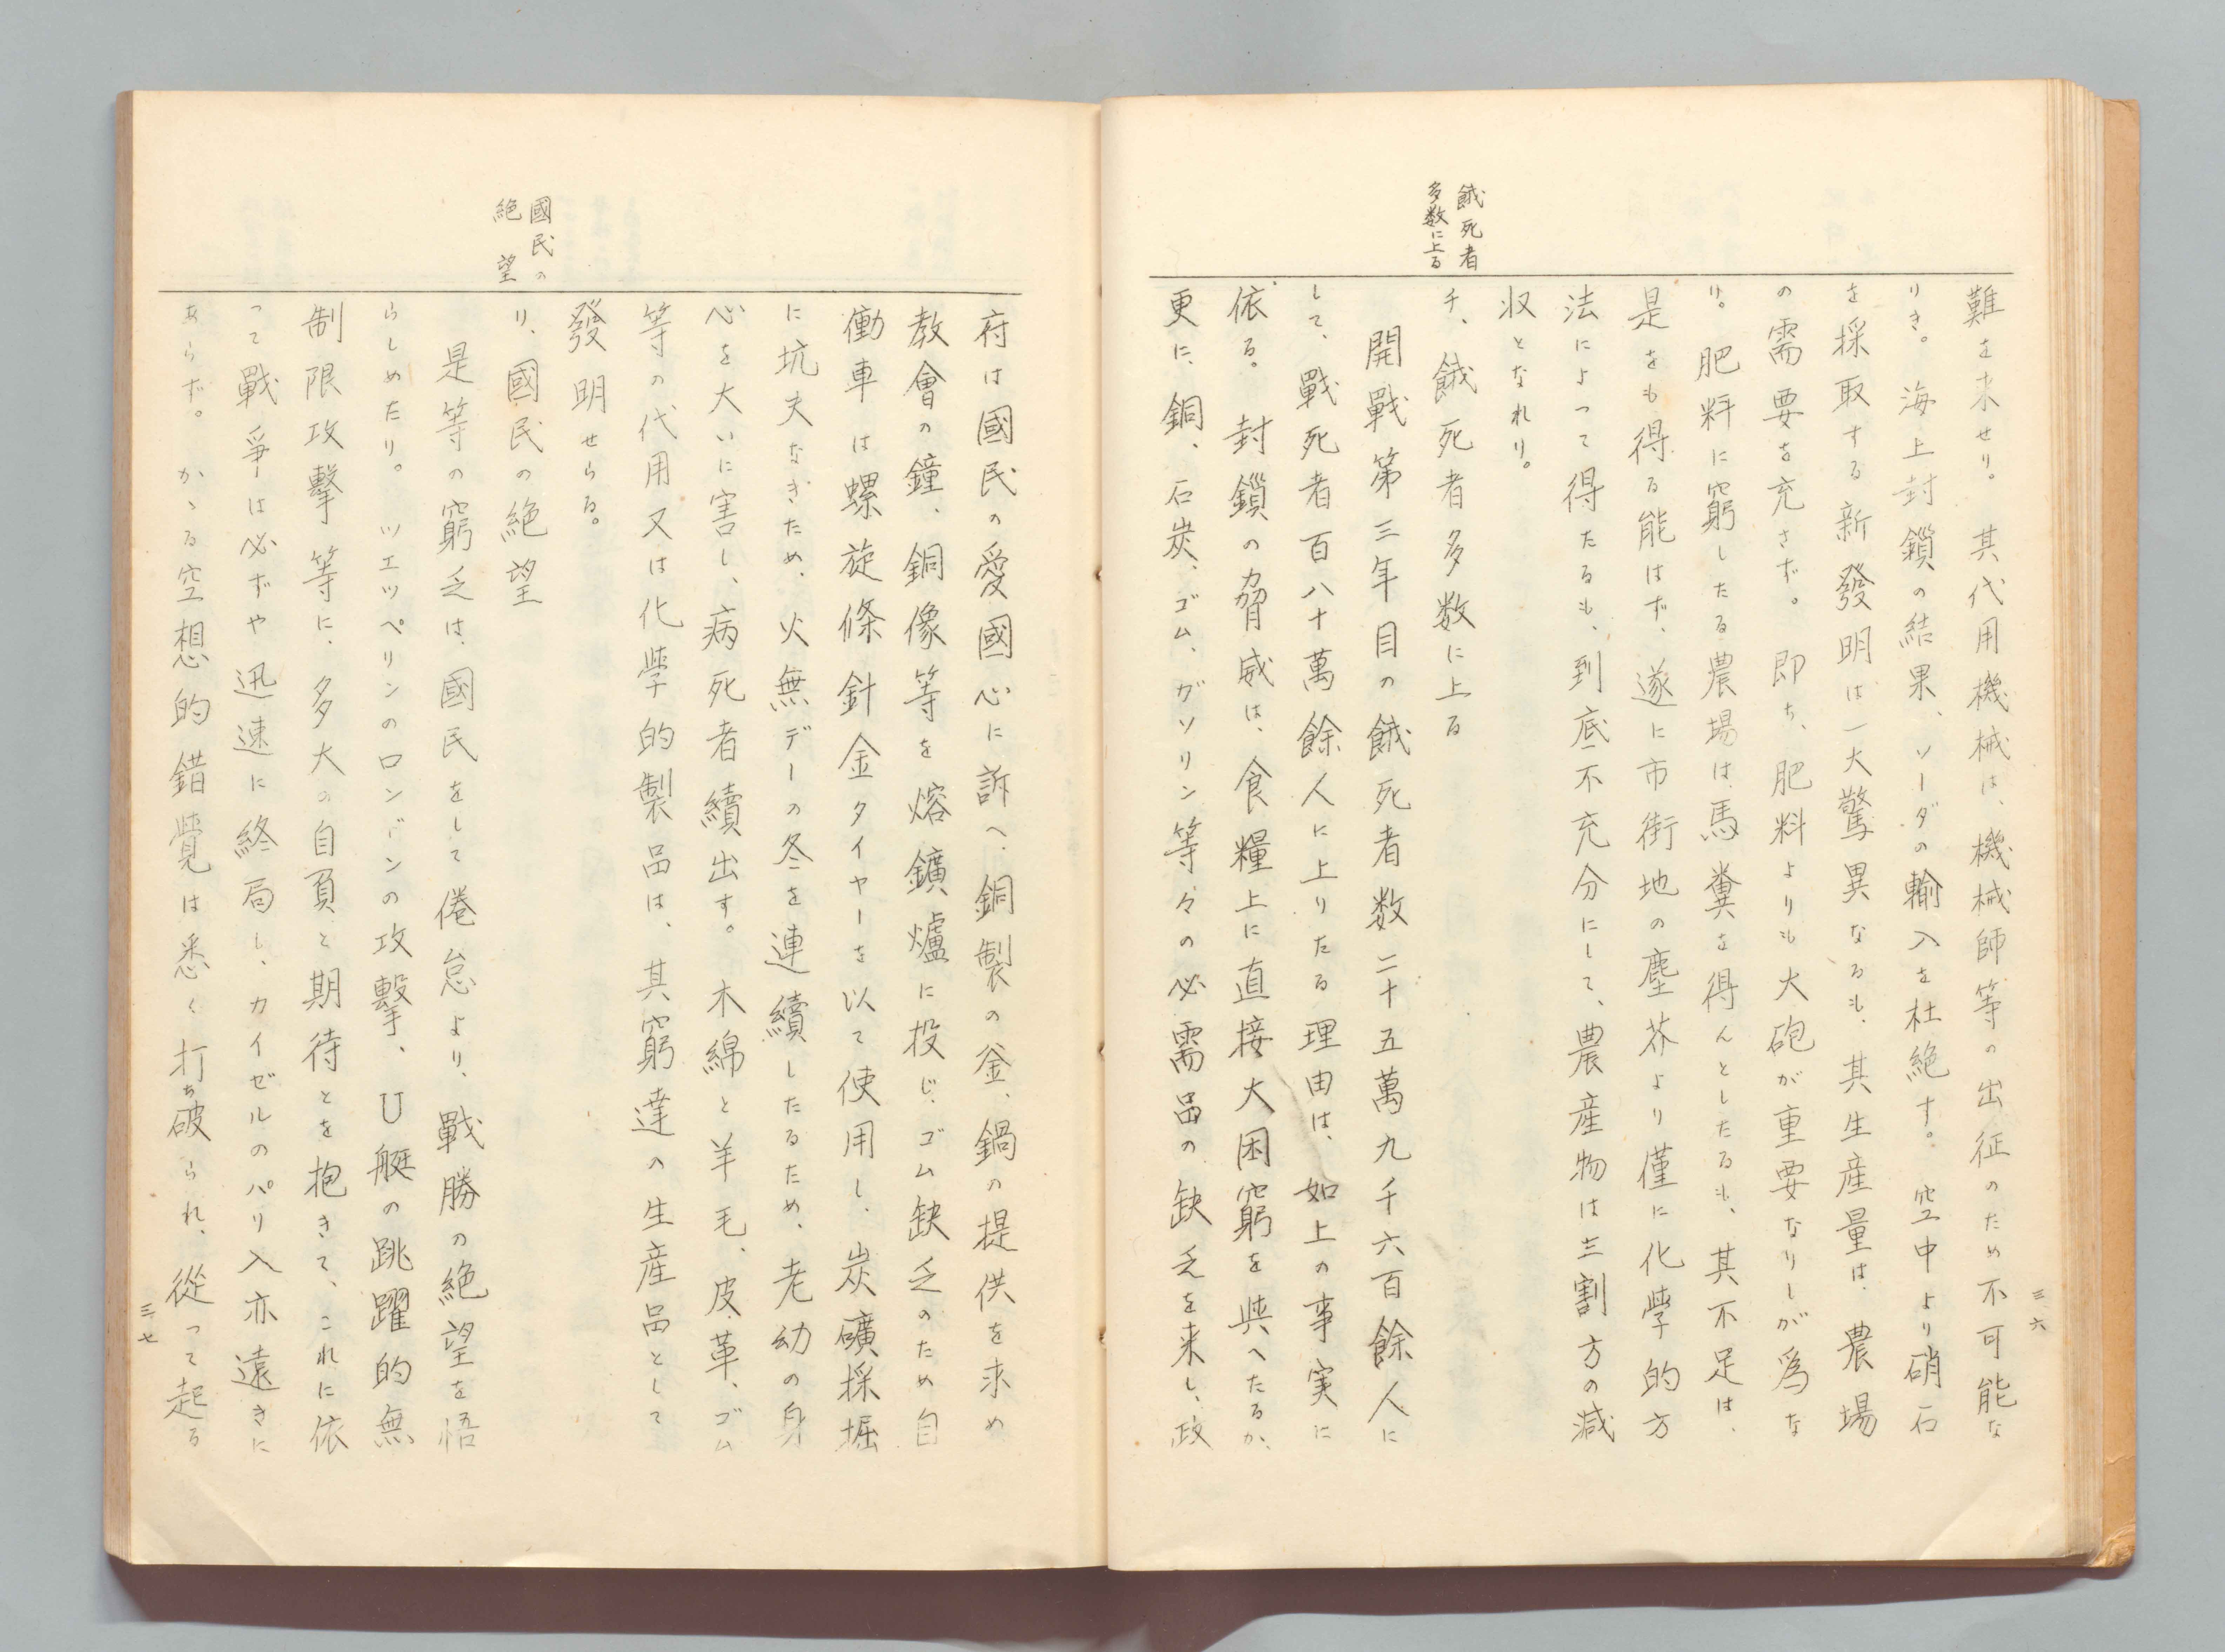 餓死者
多数に上る
難を来せり。其代用機械は、機械師等の出征のため不可能な
りき。海上封鎖の結果、ソーダの輸入を杜絶す。空中より硝石
を採取する新發明は一大驚異なるも、其生産量は、農場
の需要を充さず。即ち、肥料よりも大砲が重要なりしが爲な
り。肥料に窮したる農場は、馬糞を得んとしたるも、其不足は、
是をも得る能はず、遂に市街地の塵芥より僅に化學的方
法によつて得たるも、到底不充分にして、農産物は三割方の減
収となれり。
チ、餓死者多数に上る
開戰第三年目の餓死者数二十五萬九千六百餘人に
して、戰死者百八十萬餘人に上りたる理由は、如上の事実に
依る。封鎖の脅威は、食糧上に直接大困窮を與へたるが、
更に、銅、石炭、ゴム、ガソリン等々の必需品の缺乏を来し、政
三六
國民の
絶望
府は國民の愛國心に訴へ、銅製の釜、鍋の提供を求め
教會の鐘、銅像等を熔鑛爐に投じ、ゴム缺乏のため自
働車は螺旋條針金タイヤーを以て使用し、炭礦採掘
に坑夫なきため、火無デーの冬を連續したるため、老幼の身
心を大いに害し、病死者續出す。木綿と羊毛、皮革、ゴム
等の代用又は化學的製品は、其窮達の生産品として
發明せらる。
リ、國民の絶望
是等の窮乏は、國民をして倦怠より、戰勝の絶望を悟
らしめたり。ツエツペリンのロンドンの攻擊、U艇の跳躍的無
制限攻擊等に、多大の自負と期待とを抱きて、これに依
つて戰爭は必ずや迅速に終局し、カイゼルのパリ入亦遠きに
あらず。かゝる空想的錯覺は悉く打ち破られ、從つて起る
三七